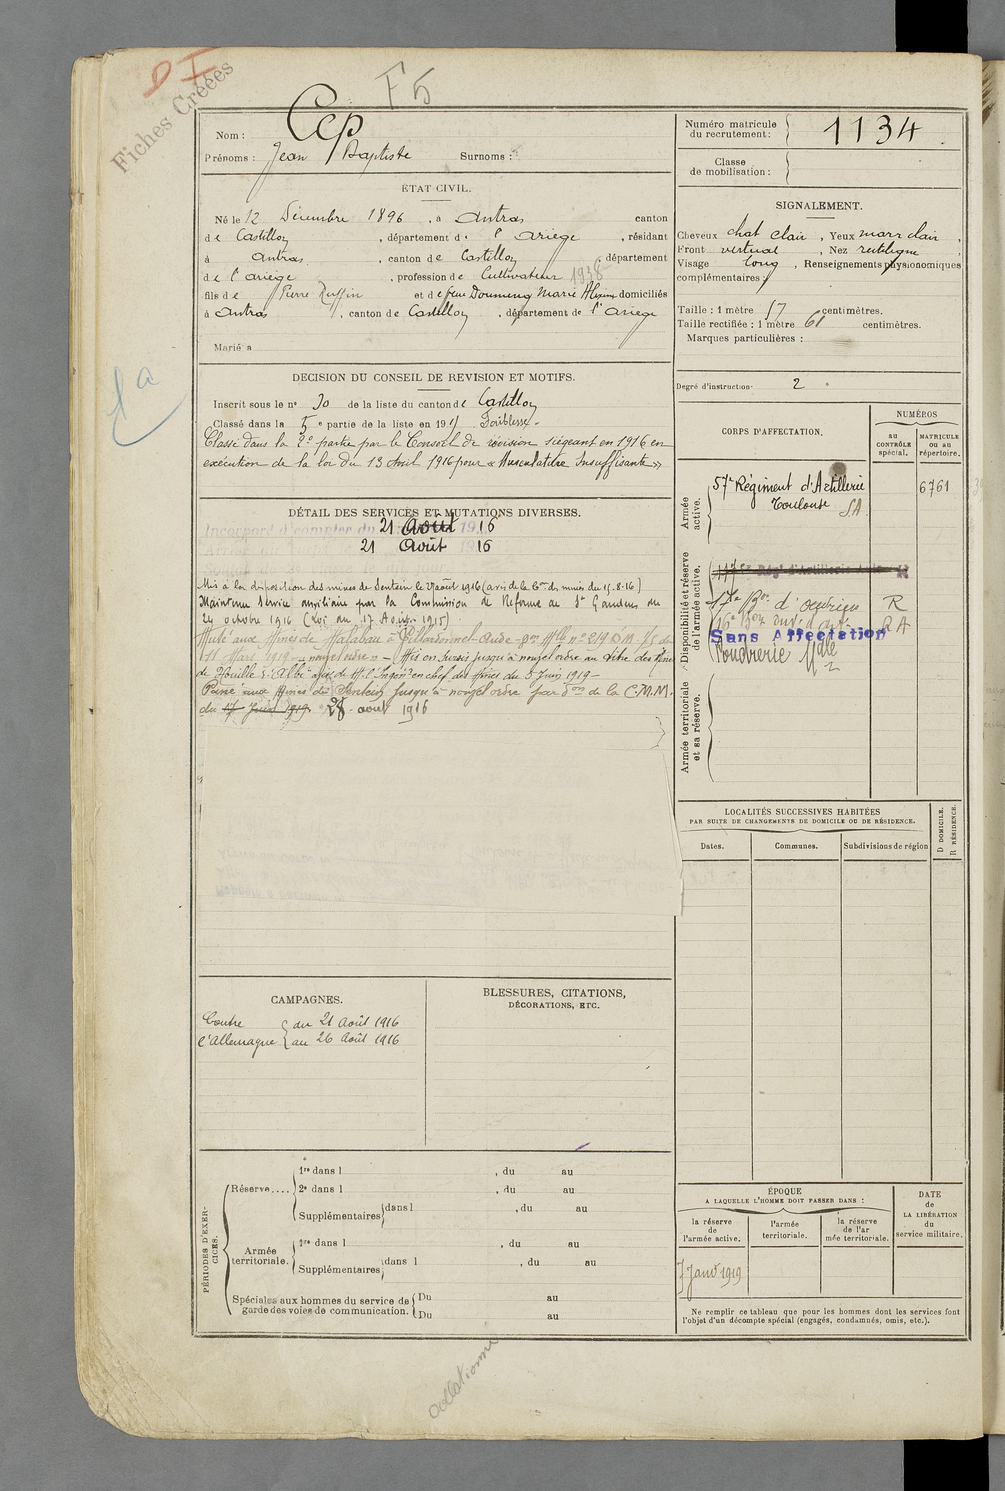 Fiches Créées
F5
Nom : Cep
Prénoms : Jean Baptiste Surnoms :
Numéro matricule du recrutement : 1134
Classe de mobilisation :
ÉTAT CIVIL.
Né le 12 Décembre 1896, à Antras canton
de Castillon, département de l'Ariège, résidant
à Antras, canton de Castillon, département
de l'Ariège, profession de Cultivateur 1938
fils de Pierre Ruffin et de feue Doumeng Marie domiciliés
à Antras, canton de Castillon, département de l'Ariège
Marié à
SIGNALEMENT.
Cheveux chat clair, Yeux marr clair,
Front vertical, Nez rectiligne,
Visage long, Renseignements physionomiques
complémentaires :
Taille : 1 mètre 57 centimètres.
Taille rectifiée : 1 mètre 61 centimètres.
Marques particulières :
Degré d'instruction 2
1a
DECISION DU CONSEIL DE REVISION ET MOTIFS.
Inscrit sous le n° 30 de la liste du canton de Castillon
Classé dans la 5e partie de la liste en 1915 Faiblesse.
Classé dans la 2e partie par le Conseil de révision siégeant en 1916 en
exécution de la loi du 13 Avril 1916 pour « Musculature Insuffisante »
DÉTAIL DES SERVICES ET MUTATIONS DIVERSES.
Incorporé à compter du 21 Août 1916
21 Août 1916
Mis à la disposition des mines de Sentein le août 1916 (avis de la des mines du 15.8.16)
Maintenu Service auxiliaire par la Commission de Réforme de St Gaudens du
24 octobre 1916 (Loi du 17 Août 1915)
Muté aux Mines de
11 Mars 1919 nouvel ordre – Mis en Sursis jusqu'à nouvel ordre au titre des Mines
de Houille d'Albi avis de M. l'Ingénr en chef des Mines du 5 Juin 1919 –
Passé aux Mines de Sentein jusqu'à nouvel ordre par don de la C.M.M.
du 17 Juin 1919 28 août 1916
CORPS D'AFFECTATION.
NUMÉROS
au CONTRÔLE spécial.
MATRICULE ou au répertoire.
Armée active.
57e Régiment d'Artillerie 6761
Toulouse SA
Disponibilité et réserve de l'armée active.
17e Bon d'ouvriers R
16e R A
Sans Affectation
Poudrerie
Armée territoriale et sa réserve.
LOCALITÉS SUCCESSIVES HABITÉES
PAR SUITE DE CHANGEMENTS DE DOMICILE OU DE RÉSIDENCE.
Dates.
Communes.
Subdivisions de région
D DOMICILE.
R RÉSIDENCE.
CAMPAGNES.
Contre l'Allemagne
du 21 Août 1916
au 26 Août 1916
BLESSURES, CITATIONS,
DÉCORATIONS, ETC.
PÉRIODES D'EXERCICES.
Réserve....
1re dans l , du au
2e dans l , du au
Supplémentaires dans l , du au
Armée territoriale.
1re dans l , du au
Supplémentaires dans l , du au
Spéciales aux hommes du service de garde des voies de communication.
Du au
Du au
ÉPOQUE
A LAQUELLE L'HOMME DOIT PASSER DANS :
la réserve de l'armée active.
l'armée territoriale.
la réserve de l'armée territoriale.
DATE de LA LIBÉRATION du service militaire.
7 Janv 1919
Ne remplir ce tableau que pour les hommes dont les services font
l'objet d'un décompte spécial (engagés, condamnés, omis, etc.).